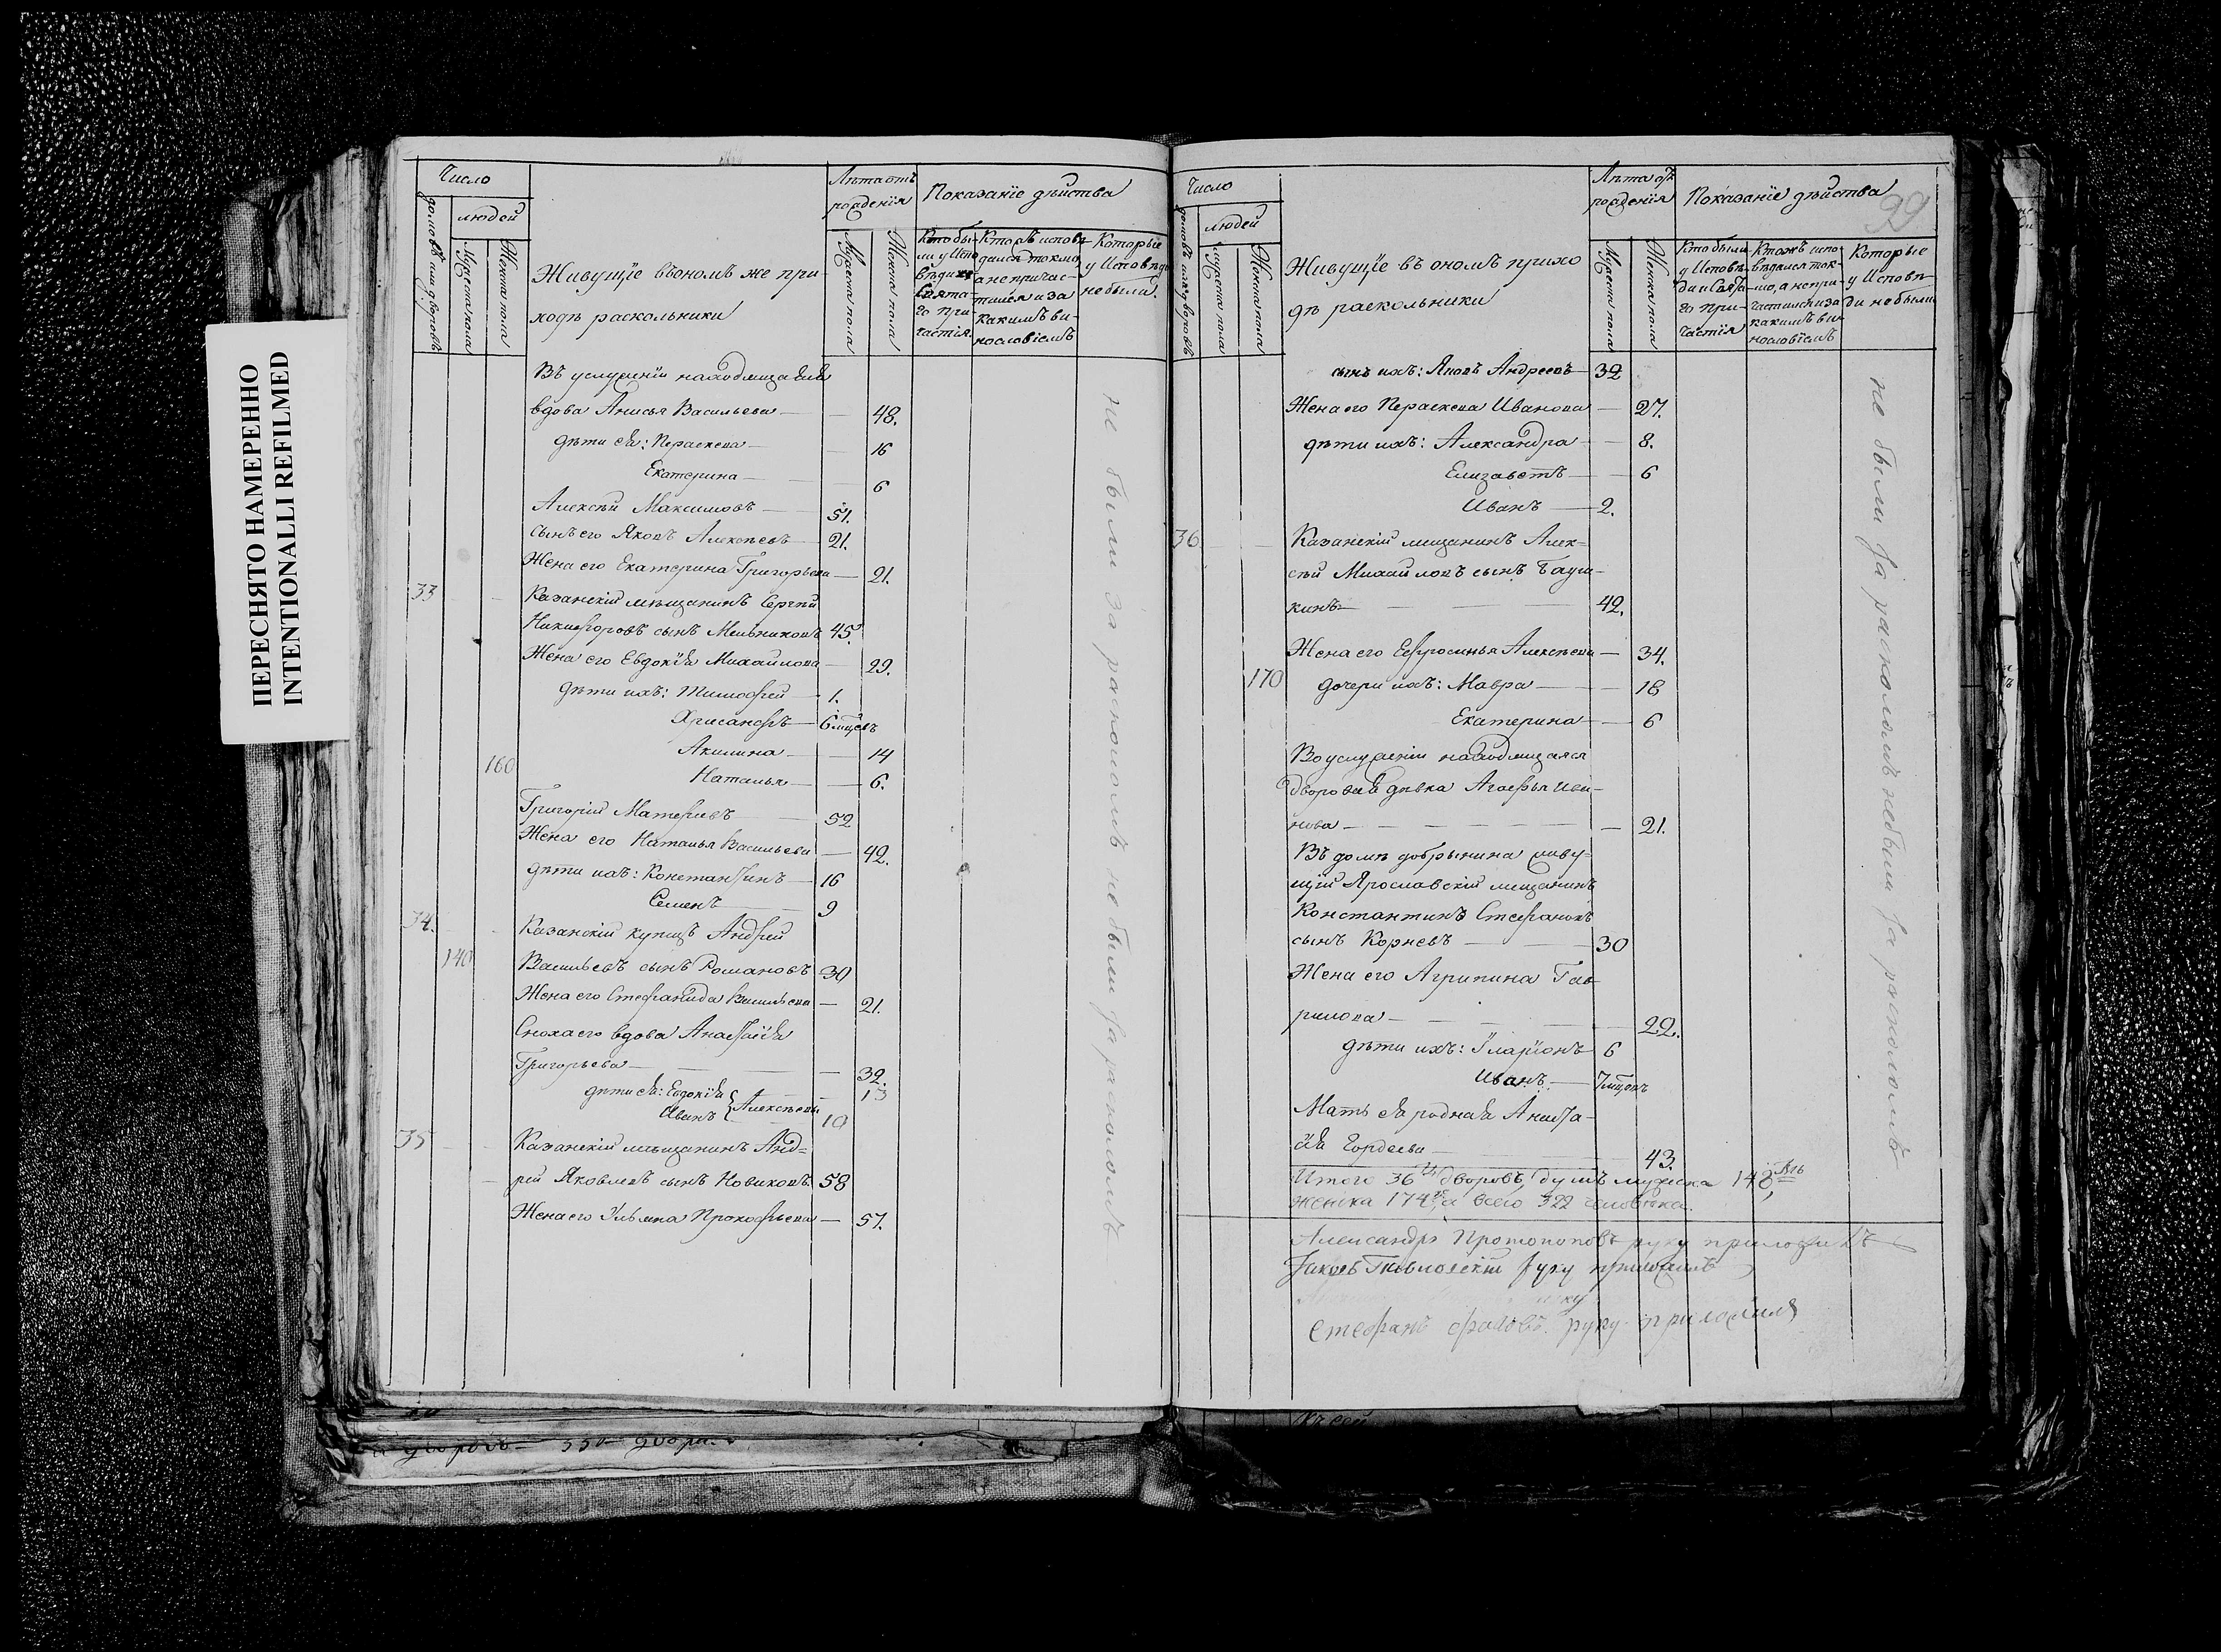 ПЕРЕСНЯТО НАМЕРЕННО
INTENTIONALLI REFILMED
Число
домовъ или дворовъ
людей
Мужеска пола
Женска пола
Живущіе въ ономъ же при-
ходѣ раскольники
Лѣта отъ
рожденія
Мужеска пола
Женска пола
Показаніе дѣйства
Кто бы-
ли у Испо
вѣди и
Свята-
го при-
частія.
Кторъ исповѣ
дался токмо
а не причас-
тился и за
какимъ ви-
нословіемъ
Которые
у Исповѣди
не были.
Въ услуженіи находящаяся
вдова Анисья Васильева — 48.
дѣти ея: Параскева — 16
Екатерина — 6
Алексѣй Максимовъ — 51.
сынъ его Яковъ Алексѣевъ — 21.
Жена его Екатерина Григорьева — 21.
33 Казанскій мѣщанинъ Сергѣй
Никифоровъ сынъ Мельниковъ 45.
Жена его Евдокія Михайлова — 29.
дѣти ихъ: Тимофей — 1.
Хрисанфъ — 6 мцовъ
Акилина — 14
160 Наталья — 6.
Григорій Матвѣевъ — 52
Жена его Наталья Васильева — 42.
дѣти ихъ: Константинъ — 16
Семенъ — 9
34. Казанскій купецъ Андрей
140 Васильевъ сынъ Романовъ 30
Жена его Стефанида Васильева — 21.
Сноха его вдова Анастасія
Григорьева — 32.
дѣти ея: Евдокія 13
Иванъ } Алексѣевы 10
35 Казанскій мѣщанинъ Анд=
рей Яковлевъ сынъ Новиковъ 58
Жена его Ульяна Прокофьева — 57.
не были за расколомъ не были за расколомъ
99
Число
домовъ или дворовъ
людей
Мужеска пола
Женска пола
Живущіе въ ономъ прихо
дѣ раскольники
Лѣта отъ
рожденія
Мужеска пола
Женска пола
Показаніе дѣйства
Кто были
у Исповѣ-
ди и Свята-
го при-
частія
Ктожъ испо-
вѣдался ток-
мо, а не при-
частился и за
какимъ ви-
нословіемъ
Которые
у Исповѣ-
ди не были
сынъ ихъ: Яковъ Андреевъ — 32
Жена его Параскева Иванова — 27.
дѣти ихъ: Александра — 8.
Елизаветъ — 6
Иванъ — 2.
36 Казанскій мещанинъ Алек=
сѣй Михайловъ сынъ
кинъ — 42.
Жена его Ефросинья Алексѣева — 34.
170 дочери ихъ: Мавра — 18
Екатерина — 6
Во услуженіи находящаяся
дворовая дѣвка Агафья Ива-
нова — 21.
Въ домѣ добрынина живу=
щій Ярославскій мещанинъ
Константинъ Стефановъ
сынъ Корневъ — 30
Жена его Агрипина Гав-
рилова — 22.
дѣти ихъ: Іларіонъ 6
Иванъ — 7 мцовъ
Мать ея родная Анаста-
сія Гордеева — 43.
Итого 36ть дворовъ, душъ мужеска 148мь
женска 174, а всего 322 человѣка.
Александръ Протопоповъ руку приложилъ
Іаковъ руку приложилъ
Стефанъ руку приложилъ
не были за расколомъ не были за расколомъ